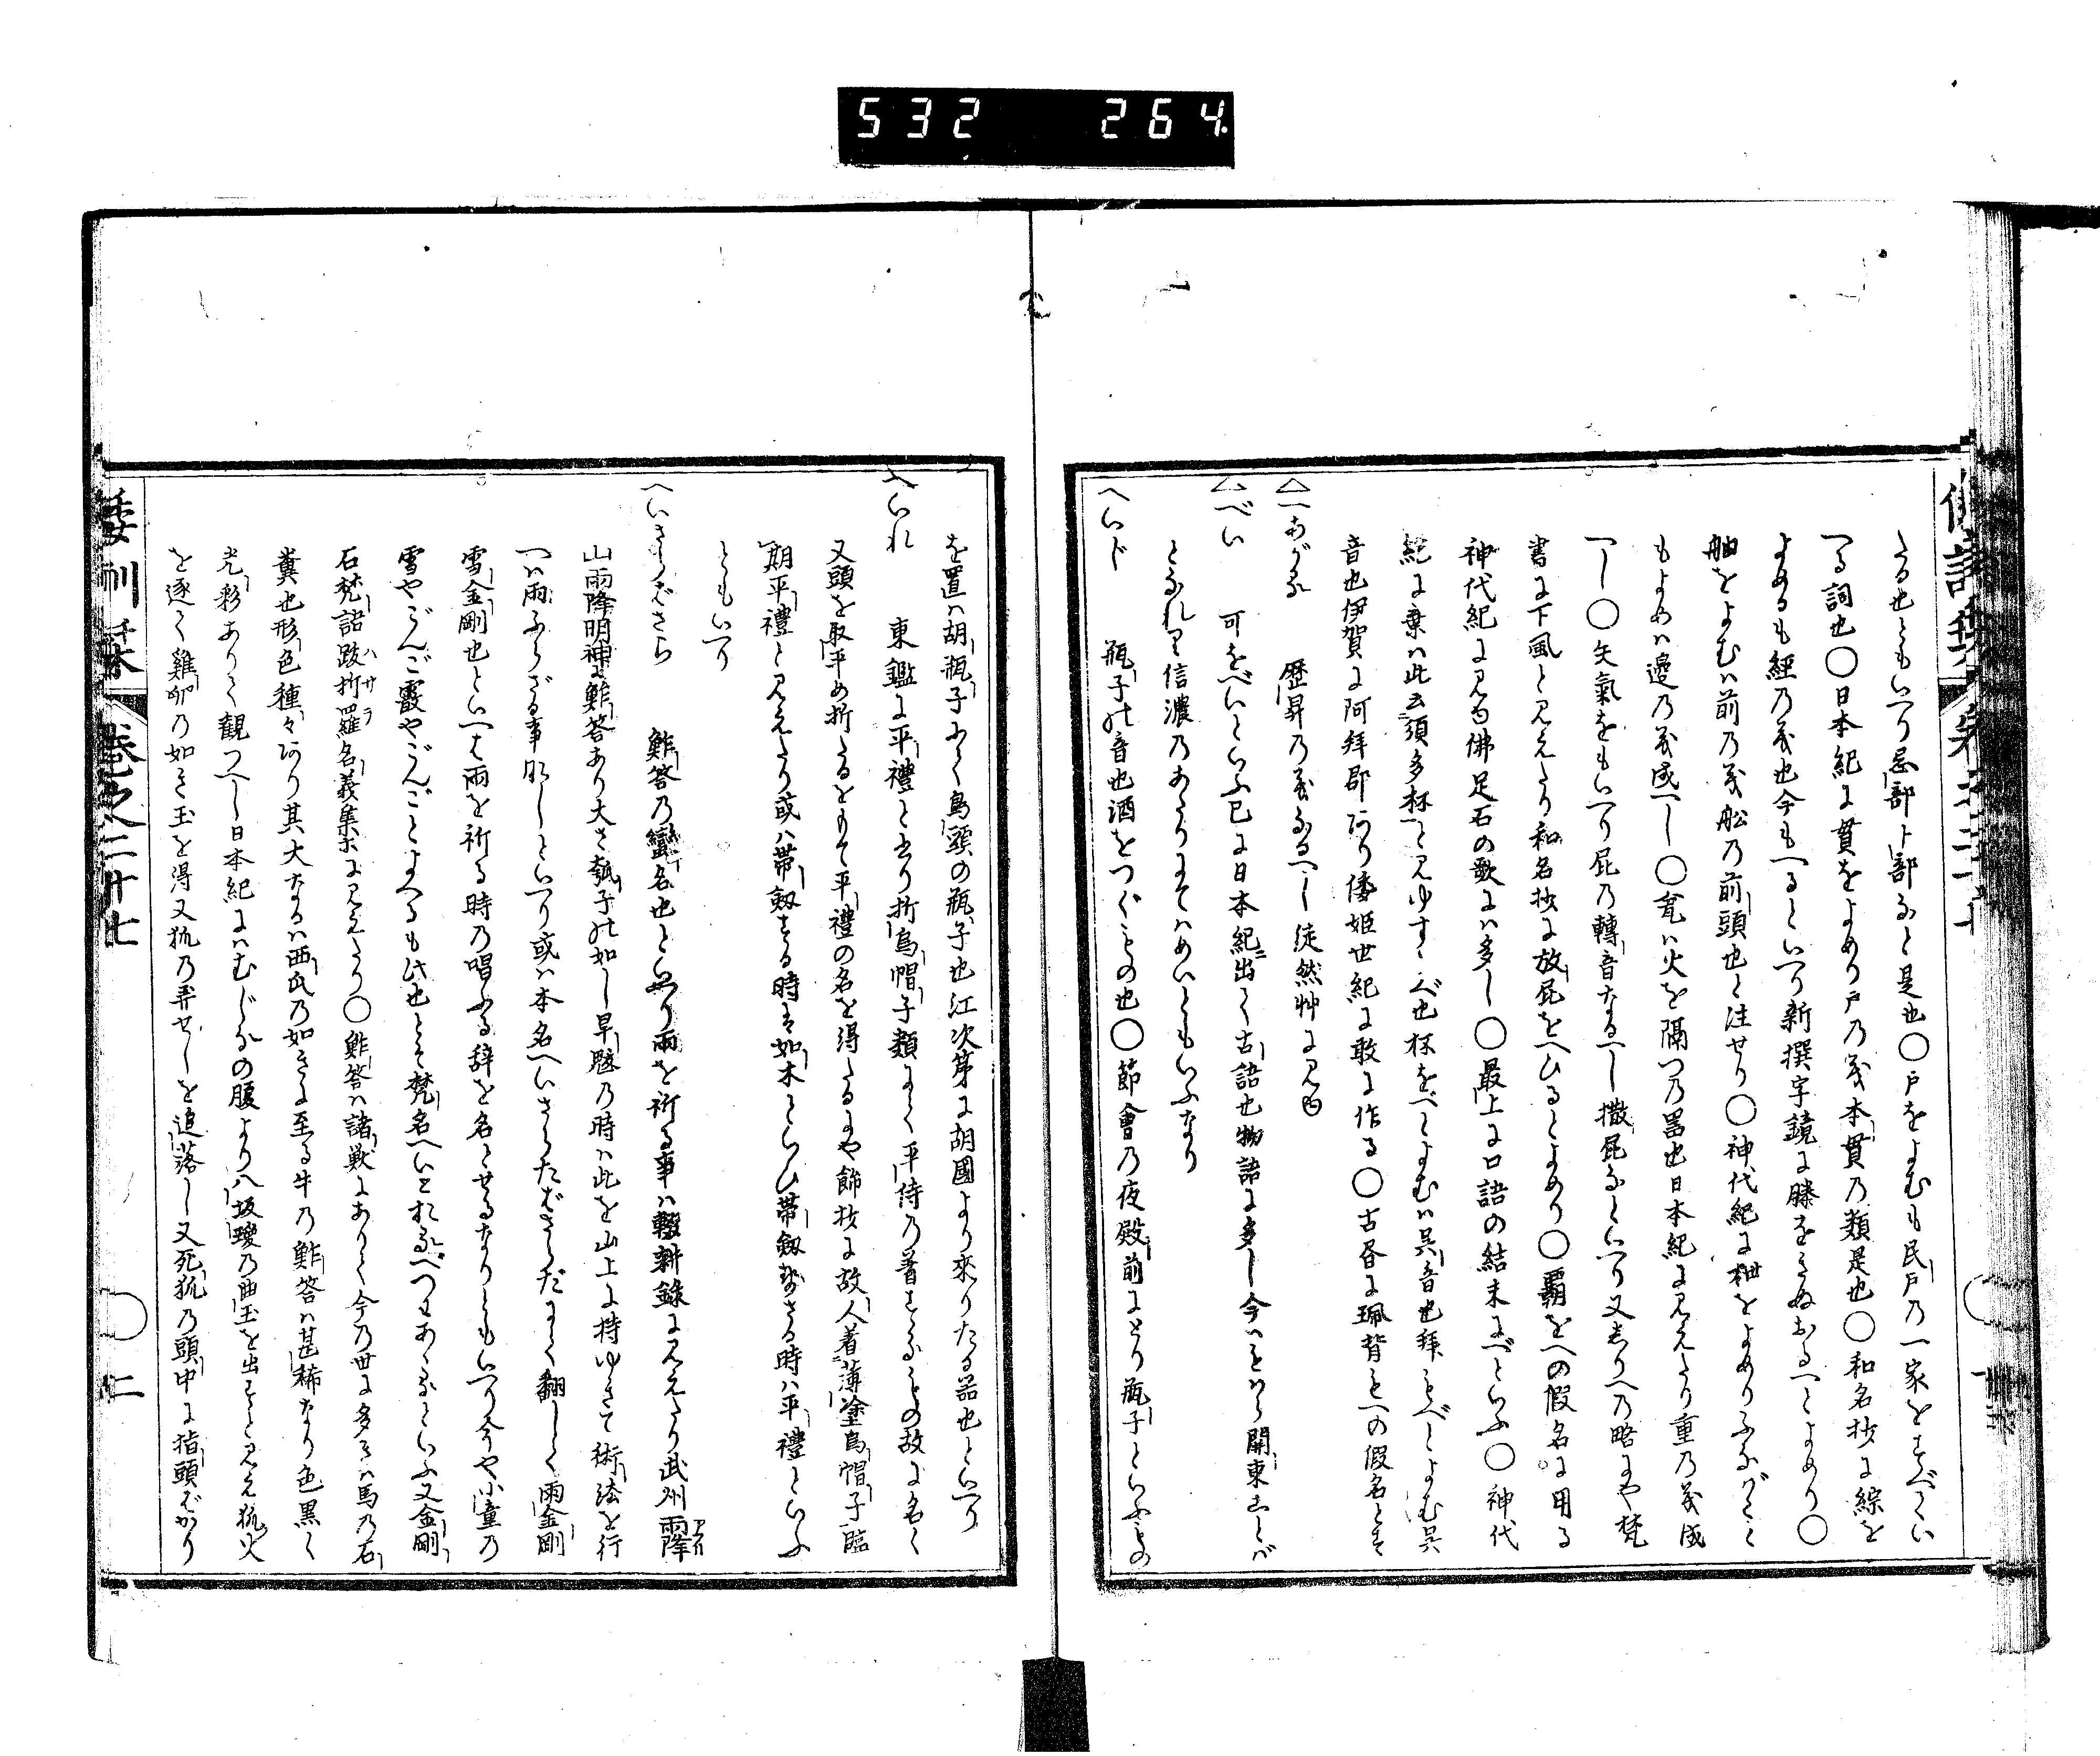 532 264
たる也ともいへり忌部卜部なと是也〇戸をよむも民戸乃一家をすべてい
へる詞也〇日本紀に貫をよめり戸乃義本貫乃類是也〇和名抄に綜を
よめるも經乃義也今もへるといへり新撰字鏡に縢をきぬおるへとよめり〇
舳をよむハ前乃義舩乃前頭也と注せり〇神代紀に柂をよめりふなばこと
もよめハ邉乃義成へし〇竃ハ火を隔つ乃噐也日本紀に見えたり重乃義成
へし〇矢氣をもいへり屁乃轉音なるへし撒屁なといへり又志りへ乃略にや梵
書に下風と見えたり和名抄に放屁をへひるとよめり〇覇をへの假名に用る
神代紀に見ゆ佛足石の歌にハ多し〇最上に口語の結末にべといふ〇神代
紀に棄ハ此云須多杯と見ゆすゝべ也杯をべとよむハ呉音也拜もべとよむ呉
音也伊賀に阿拜郡あり倭姫世紀に敢に作る〇古昏に珮背をへの假名とす
△へあがる 歴昇乃義なるへし徒然艸に見ゆ
△べい 可をべいといふ已に日本紀ニ出て古語也物語に多し今ハもはら関東ことバ
となれり信濃乃あたりにてハめいともいふなり
へいじ 瓶子の音也酒をつぐもの也〇節會乃夜殿前にとり瓶子といふもの
を置ハ胡瓶子にて鳥頭の瓶子也江次第に胡國より來りたる器也といへり
へいれ 東鑑に平禮と書り折烏帽子類にて平侍乃着するもの故に名く
又頭を取平め折たるをもて平禮の名を得たるにや飾抄に故人着薄塗烏帽子臨
期平禮と見えたり或ハ帶劔する時を如木といひ帶劔せさる時ハ平禮といふ
ともいへり
へいさらばさら 鮓答乃蠻名也といへり雨を祈る事ハ輟耕録に見えたり武州雨降
山雨降明神に鮓答あり大さ瓠子の如し旱魃乃時ハ此を山上に持ゆきて術法を行
へハ雨ふらざる事なしといへり或ハ本名へいさらたばさらだにて翻して雨金剛
雪金剛也といへハ雨を祈る時乃唱ふる辞を名とせるなりともいへり今や小童乃
雪やごんご霰やごんごとよへるも此也とそ梵名へいとおるべつもあゝるといふ又金剛
石梵語跋折羅名義集に見えたり〇鮓答ハ諸獣にありて今乃世に多きハ馬乃石
糞也形色種々あり其大なるハ西瓜乃如きに至る牛乃鮓答ハ甚稀なり色黒く
光彩ありて観つへし日本紀にハむじなの腹より八坂瓊乃曲玉を出すと見え狐火
を逐て雞卵乃如き玉を得又狐乃弄せしを追落し又死狐乃頭中に指頭ばかり
倭訓栞 巻之二十七 〇 二